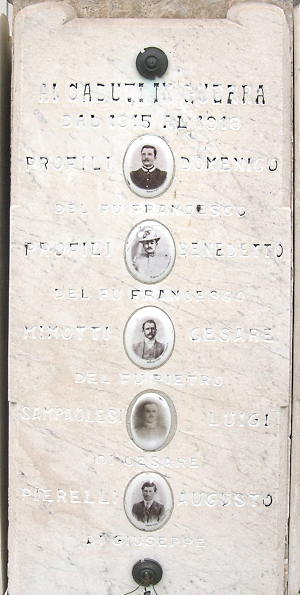 AI CADUTI IN GUERRA
DAL 1915 AL 1918
PROFILI DOMENICO
DEL FU FRANCESCO
PROFILI BENEDETTO
DEL FU FRANCESCO
MIMOTTI CESARE
DEL FU PIETRO
SAMPAOLESI LUIGI
DI CESARE
PIERELLI AUGUSTO
DI GIUSEPPE